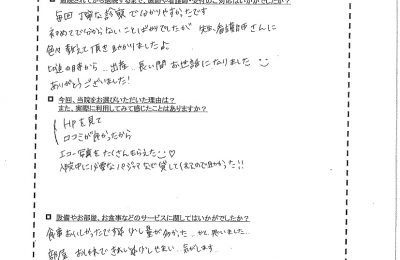 毎回丁寧な診察でわかりやすかったです
初めてでわからないことばかりでしたが 先生、看護師さんに
色々教えて頂き助かりましたよ
から、出産、長い間お世話になりました
ありがとうございました!
今回、当院をお選びいただいた理由は?
また、実際に利用してみて感じたことはありますか?
HPを見て
口コミが良かったから
エコー写真をたくさんもらえた
入院中に必要なパジャマなど貸してくれたので助かった!!
設備やお部屋、お食事などのサービスに関してはいかがでしたか?
食事おいしかったですね 少し量が多かった
部屋 きれい 気がします